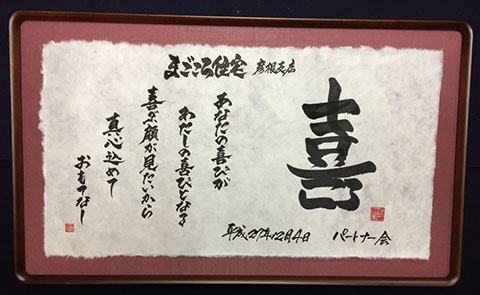 まごころ住宅 彦根支店
喜
あなたの喜びが
わたしの喜びとなる
喜ぶ顔が見たいから
真心込めて
おもてなし
平成27年12月4日 パートナー会